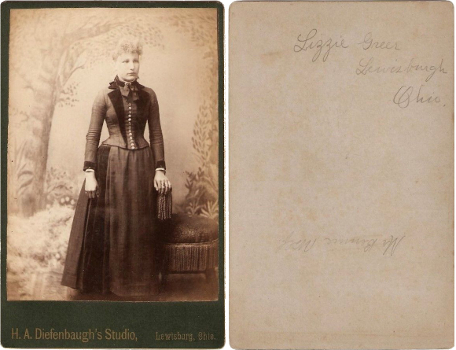 H. A. Diefenbaugh's Studio, Lewisburg, Ohio.
Lizzie Greer
Lewisbaugh
Ohio.